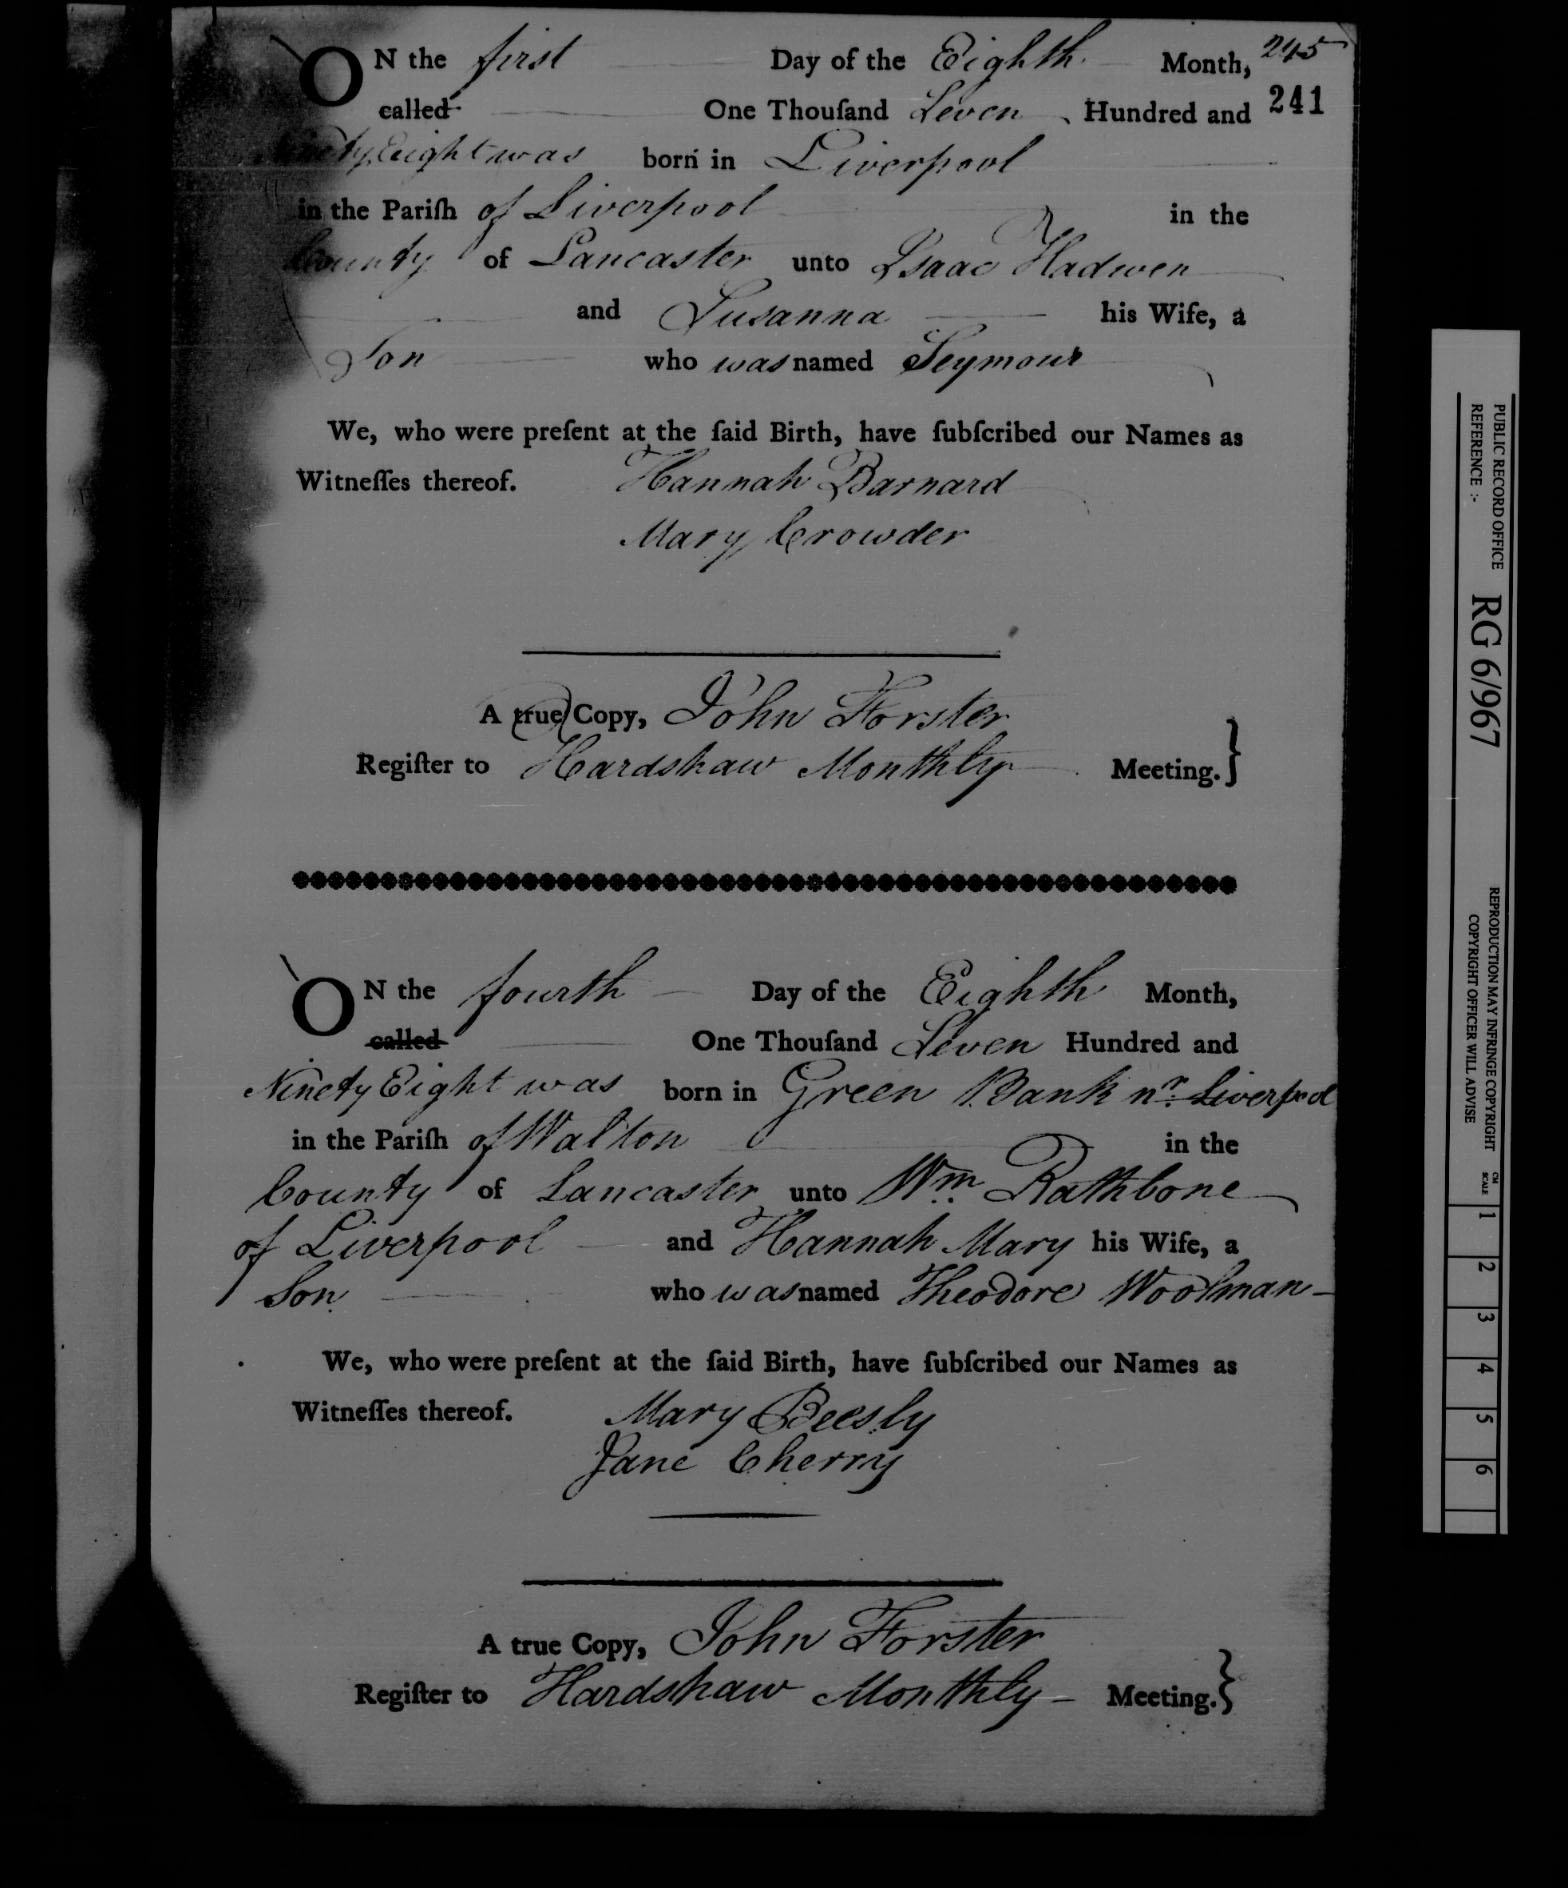 ON the first Day of the Eighth Month, 245
called One Thouſand Seven Hundred and 241
Ninety Eight was born in Liverpool
in the Pariſh of Liverpool in the
County of Lancaster unto Isaac Hadwen
and Susanna his Wife, a
Son who was named Seymour
We, who were preſent at the ſaid Birth, have ſubſcribed our Names as
Witneſſes thereof. Hannah Barnard
Mary Crowder
A true Copy, John Forster
Regiſter to Hardshaw Monthly Meeting.}
ON the fourth Day of the Eighth Month,
called One Thouſand Seven Hundred and
Ninety Eight was born in Green Bank nr. Liverpool
in the Pariſh of Walton in the
County of Lancaster unto Wm. Rathbone
of Liverpool and Hannah Mary his Wife, a
Son who was named Theodore Woolman
We, who were preſent at the ſaid Birth, have ſubſcribed our Names as
Witneſſes thereof. Mary Beesly
Jane Cherry
A true Copy, John Forster
Regiſter to Hardshaw Monthly Meeting.}
PUBLIC RECORD OFFICE
REFERENCE :-
RG 6/967
REPRODUCTION MAY INFRINGE COPYRIGHT
COPYRIGHT OFFICER WILL ADVISE
CM
SCALE
1
2
3
4
5
6